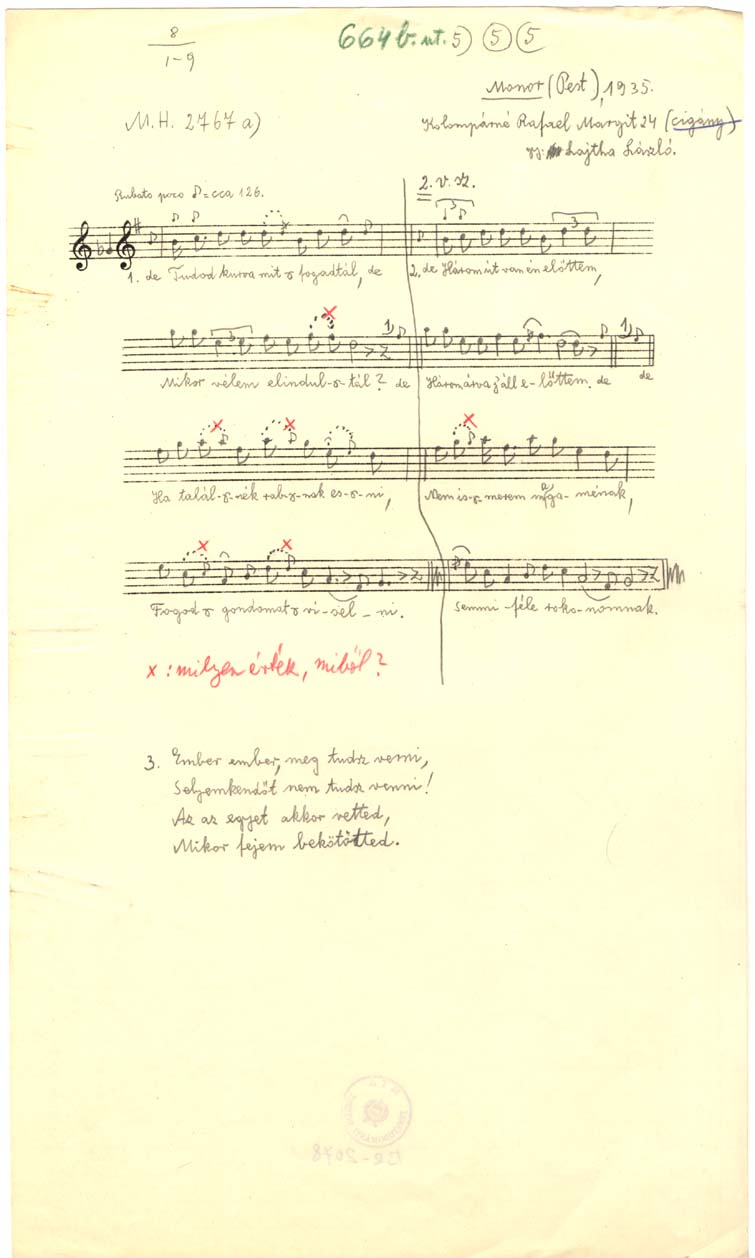 8
1-9
664 b. nt. 5) 5 5
Monor (Pest), 1935.
M.H. 2767 a)
Kolompárné Rafael Margit 24 (cigány)
Lajtha László.
Rubato poco ♪ = cca 126.
2. v. sz.
1. de Tudod kurva mit ɤ fogadtál, de
2. de Három út van én előttem,
Mikor vélem elindul-ɤ-tál? de
Három árva jáll e-lőttem. de de
Ha talál-ɤ-nék rab-ɤ-nak es-ɤ-ni,
Nem is-ɤ-merem maga-ménak,
Fogod ɤ gondomat ɤ vi-sel-ni.
semmi-féle roko-nomnak.
x : milyen érték, miből?
3. Ember ember, meg tudsz verni,
Selyemkendőt nem tudsz venni!
Az az egyet akkor vetted,
Mikor fejem bekötötted.